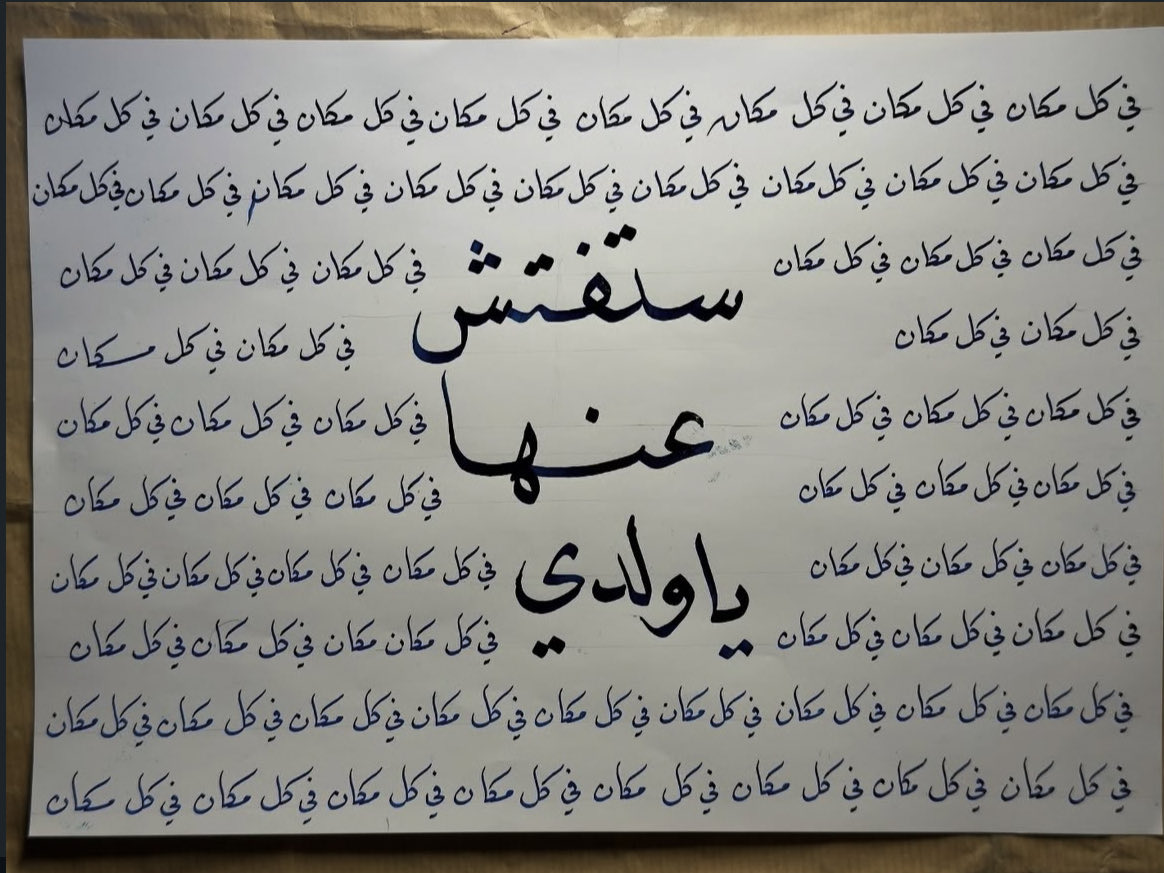 في كل مكان في كل مكان في كل مكان في كل مكان في كل مكان في كل مكان في كل مكان في كل مكان
في كل مكان في كل مكان في كل مكان في كل مكان في كل مكان في كل مكان في كل مكان في كل مكان في كل مكان
في كل مكان في كل مكان في كل مكان ستفتش في كل مكان في كل مكان في كل مكان
في كل مكان في كل مكان في كل مكان في كل مكان
في كل مكان في كل مكان في كل مكان عنها في كل مكان في كل مكان في كل مكان
في كل مكان في كل مكان في كل مكان في كل مكان في كل مكان في كل مكان
في كل مكان في كل مكان في كل مكان يا ولدي في كل مكان في كل مكان في كل مكان في كل مكان
في كل مكان في كل مكان في كل مكان في كل مكان مكان في كل مكان في كل مكان
في كل مكان في كل مكان في كل مكان في كل مكان في كل مكان في كل مكان في كل مكان في كل مكان في كل مكان
في كل مكان في كل مكان في كل مكان في كل مكان في كل مكان في كل مكان في كل مكان في كل مكان